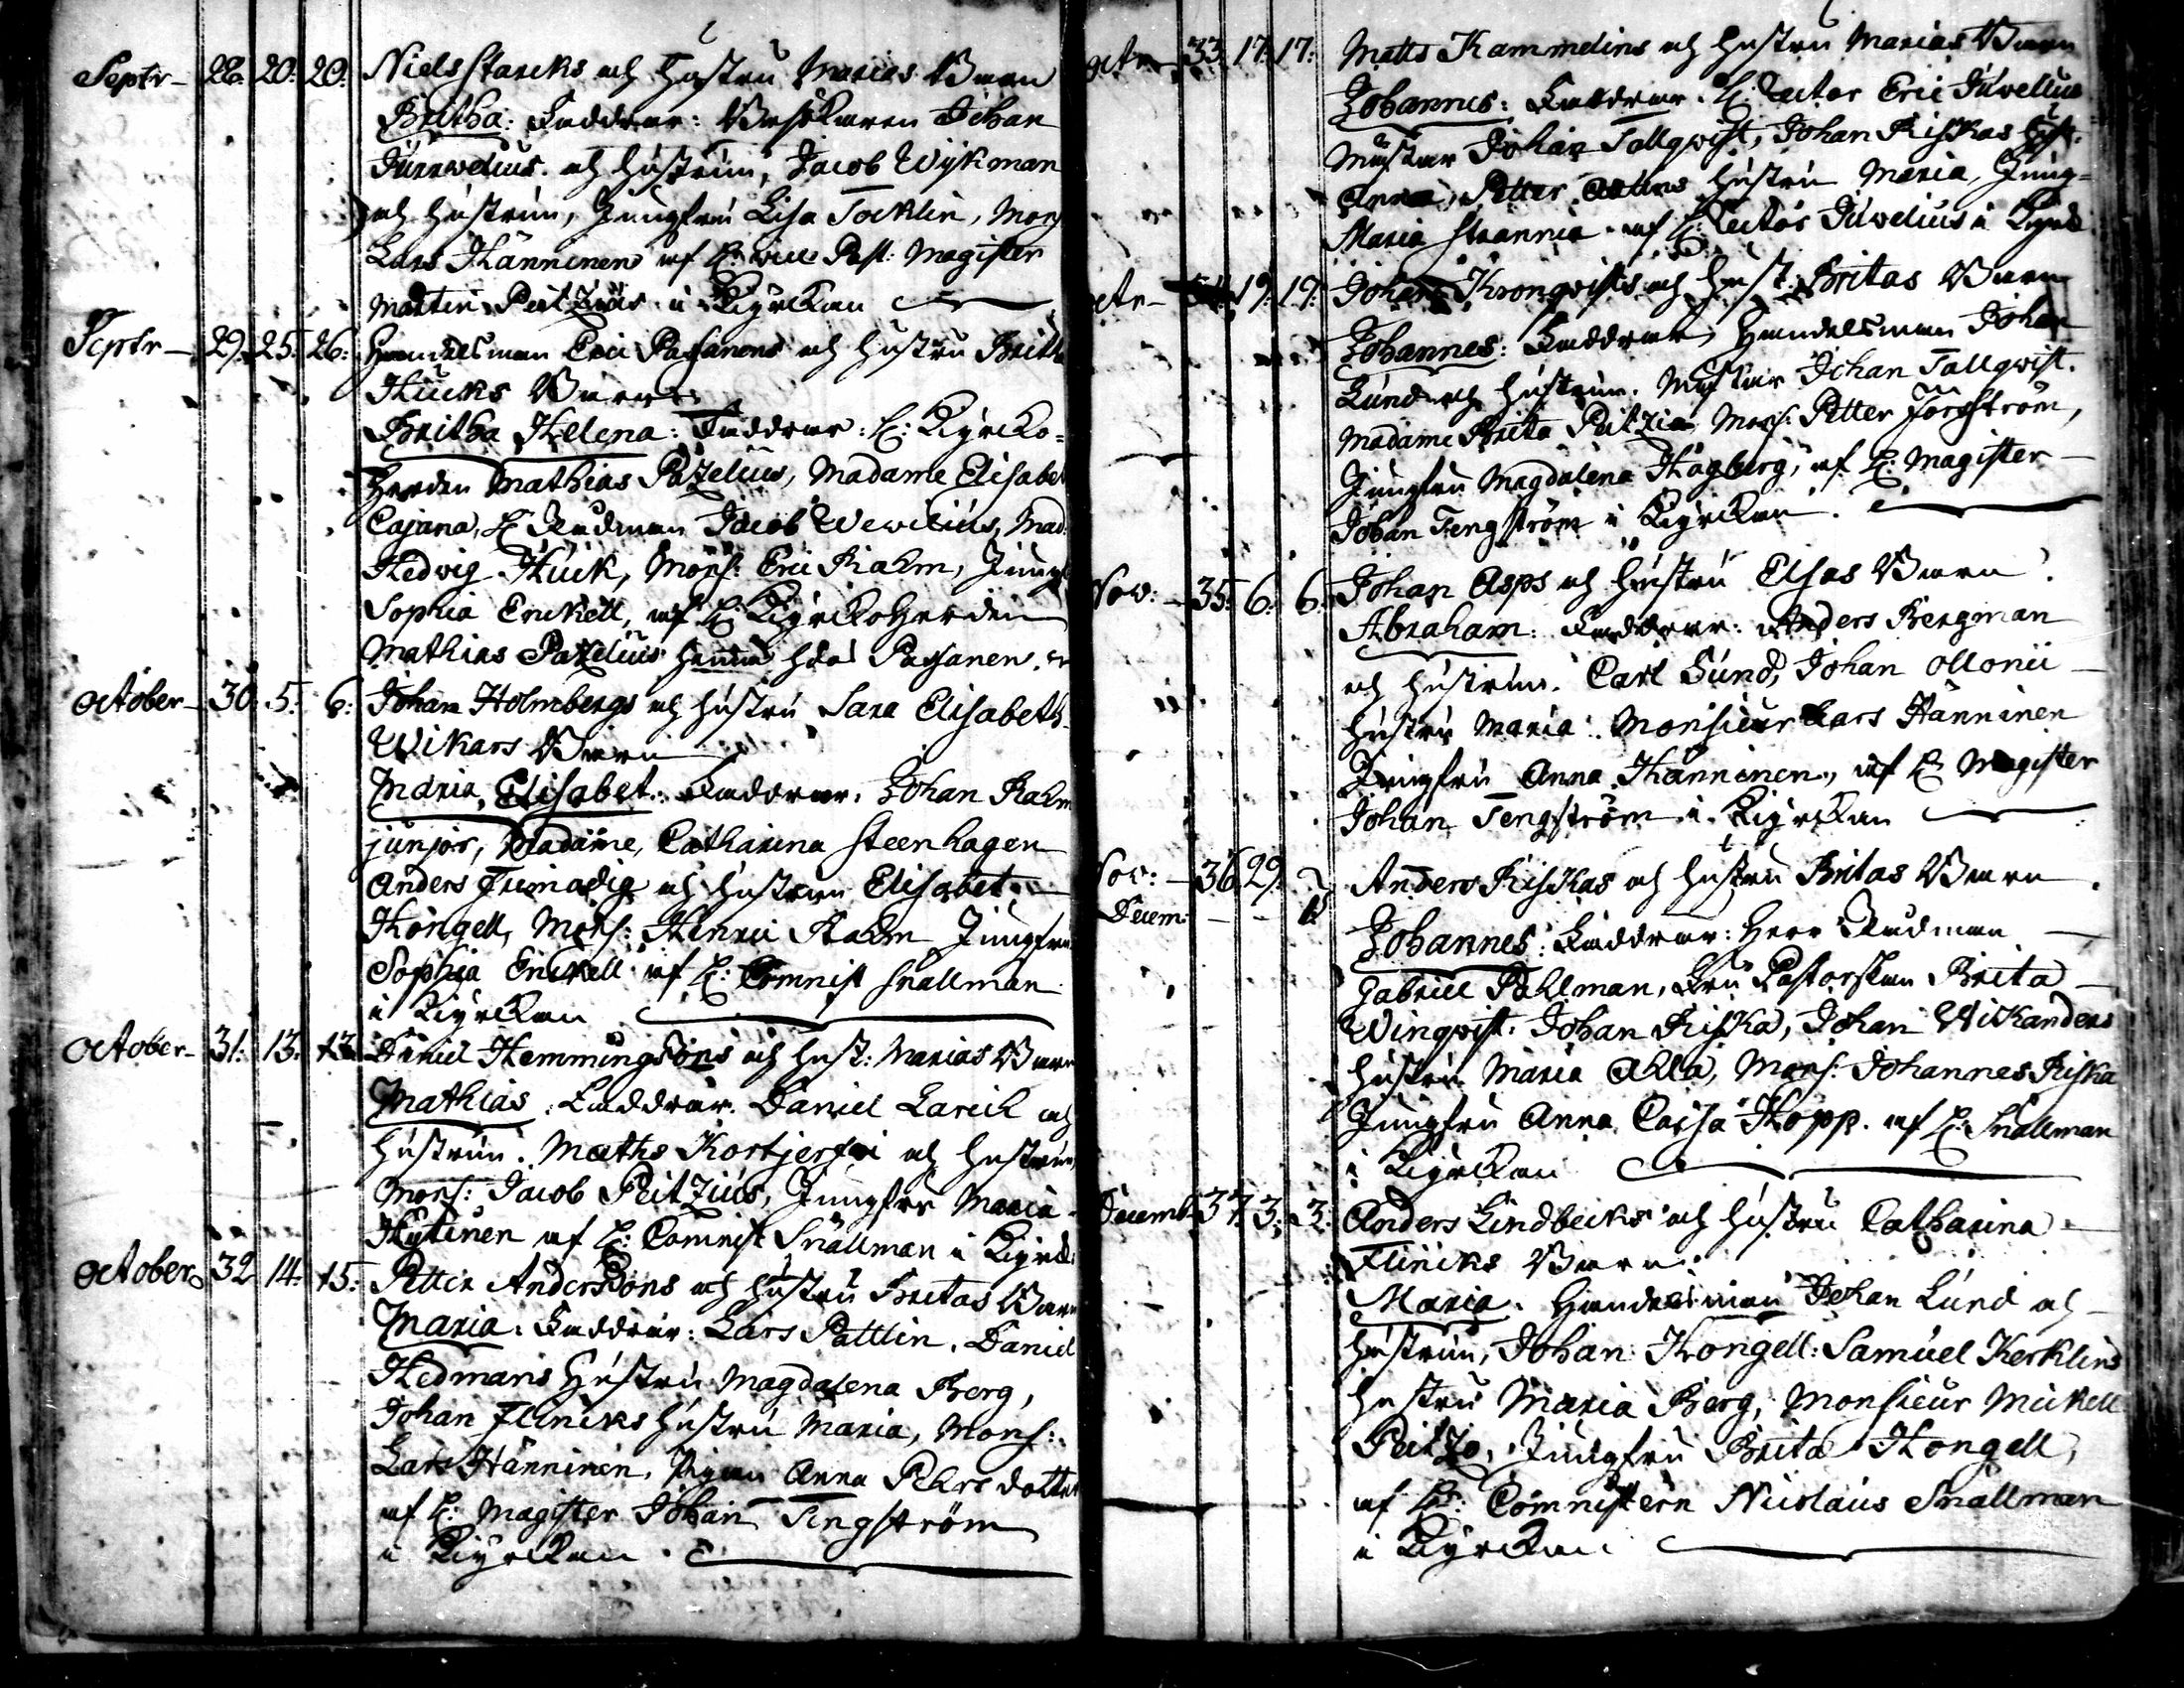 Septr 28. 20. 20. Niels Starcks och Hustru Marias Barn
Britha: Faddrar: Johan
Jurvvelius och hustrun, Jacob Wijkman
och hustrun, Jungfru Lisa Tocklin, Mons
Lars Hänninen af Past: Magister
Martin Peitzius i Kyrckan
Septr 29. 25. 26: Handelsman Eric Passanens och hustru Britha
Hucks Barn
Britha Helena: Faddrar: H: Kyrcko-
Herden Mathias Pazelius, Madame Elisabet
Cajana, H: Rådman Jacob Wewelius, Mad:
Hedvig Huck, Mons: Eric Rahm, Jungf
Sophia Enckell, af H: Kyrckoherden
Mathias Pazelius hemma hos Passanen.
October 30. 5. 6: Johan Holmbergs och hustru Sara Elisabeth
Wikars Barn
Maria Elisabet: Faddrar: Johan Rahm
junjor, Madame Catharina Steenhagen
Anders och hustrun Elisabet
Kongell, Mons: Henric Rahm Jungfru
Sophia Enckell af H: Comnist Snallman
i Kyrckan
October 31: 13. 13. Daniel Hemmingsons och hust: Marias Barn
Mathias. Faddrar. Daniel Larich och
hustrun. Maths Kortjerfwi och hustrun,
Mons: Jacob Peitzius, Jungfru Maria
Hytinen af H: Comnist Snallman i Kyrck:
October 32 14. 15. Petter Anderssons och hustru Britas Barn
Maria. Faddrar: Lars Pattlin. Daniel
Hedmans Hustru Magdalena Berg,
Johan Flincks hustru Maria, Mons:
Lars Hänninen, Pigan Anna Pehrsdotter
af H: Magister Johan Tengström
i Kyrckan
octr 33. 17. 17. Matts Kammelins och hustru Marias Barn
Johannes: Faddrar. H: Rector Eric Juvelius
Mästar Johan Tallqvist, Johan Riskas Hust:
Anna, Petter hustru Maria, Jung-
Maria Starnia af H: Rector Juvelius i Kyrck
octr 34. 19. 19. Johan Kronqvists och hust: Britas Barn
Johannes: Faddrar, Handelsman Johan
Lund och hustrun. Mästar Johan Tallqvist.
Madame Brita Peitzia Mons: Petter Forsström,
Jungfru Magdalena Hagberg, af H: Magister
Johan Tengström i Kyrckan.
Nov: 35. 6. 6. Johan Asps och hustru Elsas Barn
Abraham: Faddrar: Anders Bergman
och hustrun. Carl Lund, Johan Ollonii
hustru Maria: Monsieur Lars Hänninen
Jungfru Anna Hänninen, af H: Magister
Johan Tengström i Kyrckan
Nov: 36 29. Anders Riskas och hustru Britas Barn
Decem:
Johannes: Faddrar: Herr Rådman
Gabriel Pahlman, Fru Pastorskan Brita
Winqvist. Johan Riska, Johan Wikanders
hustru Maria Ahla, Mons: Johannes Riska
Jungfru Anna Caisa Hopp. af H: Snallman
i Kyrckan
Decemb 37. 3. 3. Anders Lindbecks och hustru Catharina
Flincks Barn
Maria. Handelsman Johan Lund och
hustrun, Johan Kongell: Samuel Kerklins
hustru Maria Berg, Monsieur Mickell
Peitzo, Jungfru Brita Kongell,
af H: Comnistern Nicolaus Snallman
i Kyrckan